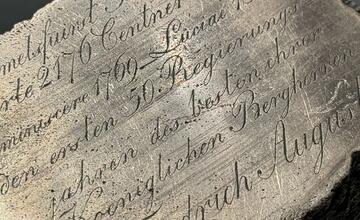 melquinst
rte 2176 Centner
miniscere 1769. Luciae
den ersten 50. Regierungs
jahren des besten ihrer
Koeniglichen Bergherren
drich August